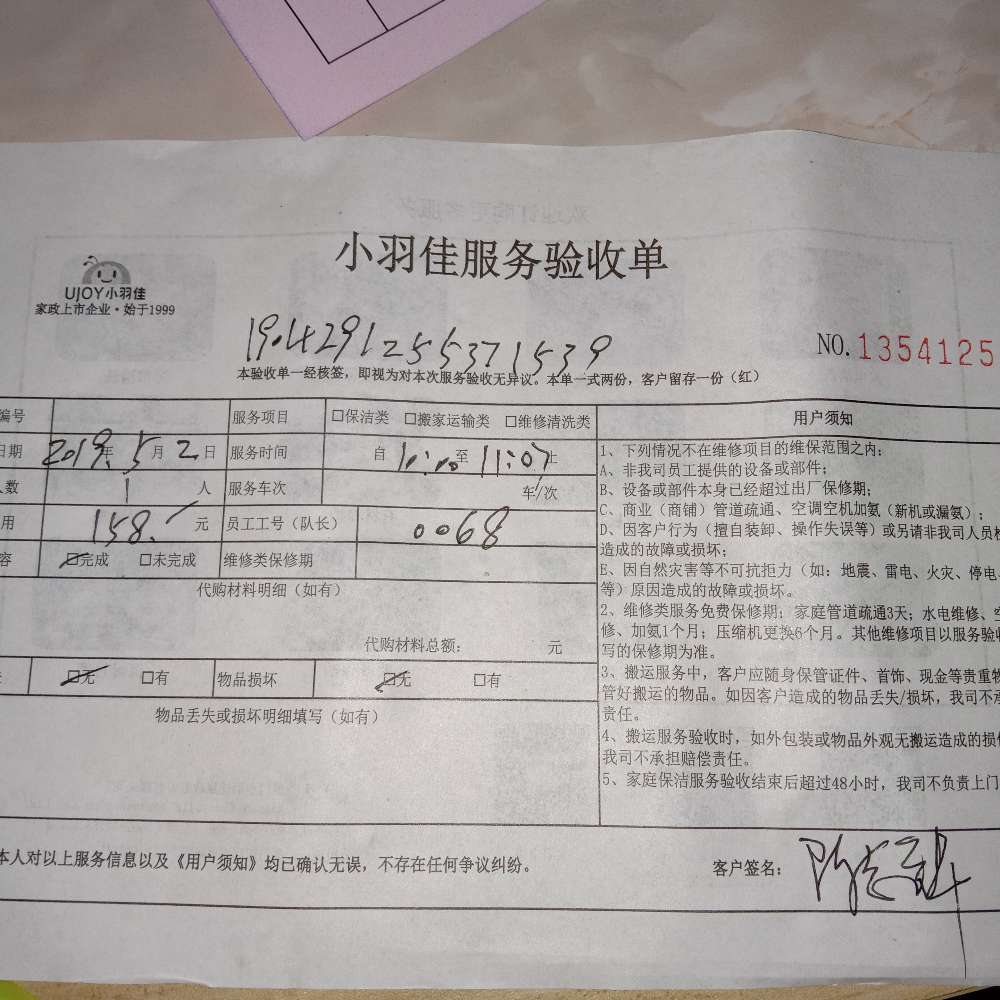 小羽佳服务验收单
UJOY小羽佳
家政上市企业·始于1999
1904291255371539
NO.1354125
本验收单一经核签，即视为对本次服务验收无异议。本单一式两份，客户留存一份（红）
编号 服务项目 □保洁类 □搬家运输类 □维修清洗类
日期 2019年5月2日 服务时间 自10:10至11:07止
人数 1人 服务车次 车/次
用 158.元 员工工号（队长） 0068
容 ☑完成 □未完成 维修类保修期
代购材料明细（如有）
代购材料总额： 元
☑无 □有 物品损坏 ☑无 □有
物品丢失或损坏明细填写（如有）
用户须知
1、下列情况不在维修项目的维保范围之内：
A、非我司员工提供的设备或部件；
B、设备或部件本身已经超过出厂保修期；
C、商业（商铺）管道疏通、空调空机加氨（新机或漏氨）；
D、因客户行为（擅自装卸、操作失误等）或另请非我司人员检
造成的故障或损坏；
E、因自然灾害等不可抗拒力（如：地震、雷电、火灾、停电、
等）原因造成的故障或损坏。
2、维修类服务免费保修期：家庭管道疏通3天；水电维修、空
修、加氨1个月；压缩机更换6个月。其他维修项目以服务验收
写的保修期为准。
3、搬运服务中，客户应随身保管证件、首饰、现金等贵重物
管好搬运的物品。如因客户造成的物品丢失/损坏，我司不承
责任。
4、搬运服务验收时，如外包装或物品外观无搬运造成的损
我司不承担赔偿责任。
5、家庭保洁服务验收结束后超过48小时，我司不负责上门
本人对以上服务信息以及《用户须知》均已确认无误，不存在任何争议纠纷。
客户签名：